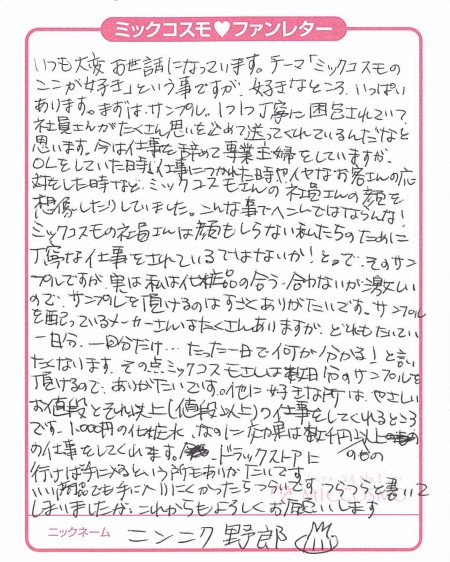 ミックコスモ♥ファンレター
いつも大変お世話になっています。テーマ「ミックコスモの
ここが好き」という事ですが、好きなところ、いっぱい
あります。まずは、サンプル。1つ1つ丁寧に困包されていて
社員さんがたくさん思いを込めて送ってくれているんだなと
思います。今は仕事を辞めて専業主婦をしていますが、
OLをしていた時、仕事につかれた時やイヤなお客さんの応
対をした時など、ミックコスモさんの社員さんの顔を
想像したりしていました。こんな事でヘコんではならんな!
ミックコスモの社員さんは顔もしらない私たちのために
丁寧な仕事をされているではないか!と。で、そのサン
プルですが、実は私は化粧品の合う、合わないが激しい
ので、サンプルを頂けるのはすごくありがたいです。サンプル
を配っているメーカーさんはたくさんありますが、どれもたいてい
一日分、一回分だけ…たった一日で何が分かる!と言い
たくなります。その点ミックコスモさんは数日分のサンプルを
頂けるので、ありがたいです。他に好きな所は、やさしい
お値段とそれ以上(値段以上)の仕事をしてくれるところ
です。1,000円の化粧水、なのに効果は数千円以上のもの
の仕事をしてくれます。ドラックストアに
行けば手に入るという所もありがたいです。
いい商品でも手に入りにくかったらつらいです。つらつらと書いて
しまいましたが、これからもよろしくお願いします
ニックネーム ニンニク野郎